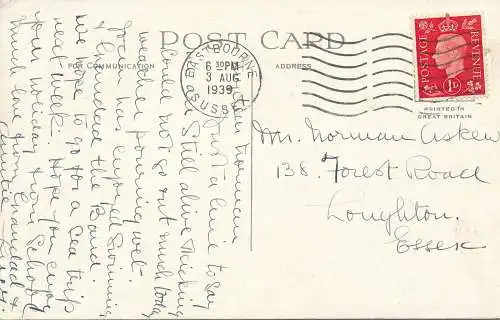 POST CARD
FOR COMMUNICATION
ADDRESS
EASTBOURNE
6 30 PM
3 AUG
1939
SUSSEX
POSTAGE
REVENUE
1D
PRINTED IN
GREAT BRITAIN
Mr. Norman Askew
138. Forest Road
Loughton.
Essex
Norman
Just a line to say
Still alive & kicking
Could not go out much today
weather wet.
Jack has enjoyed Swimming
& Grandad the Band.
we hope to go for a sea trip
next week. Hope you enjoy
your holiday from School
much love from Grandad &
Auntie